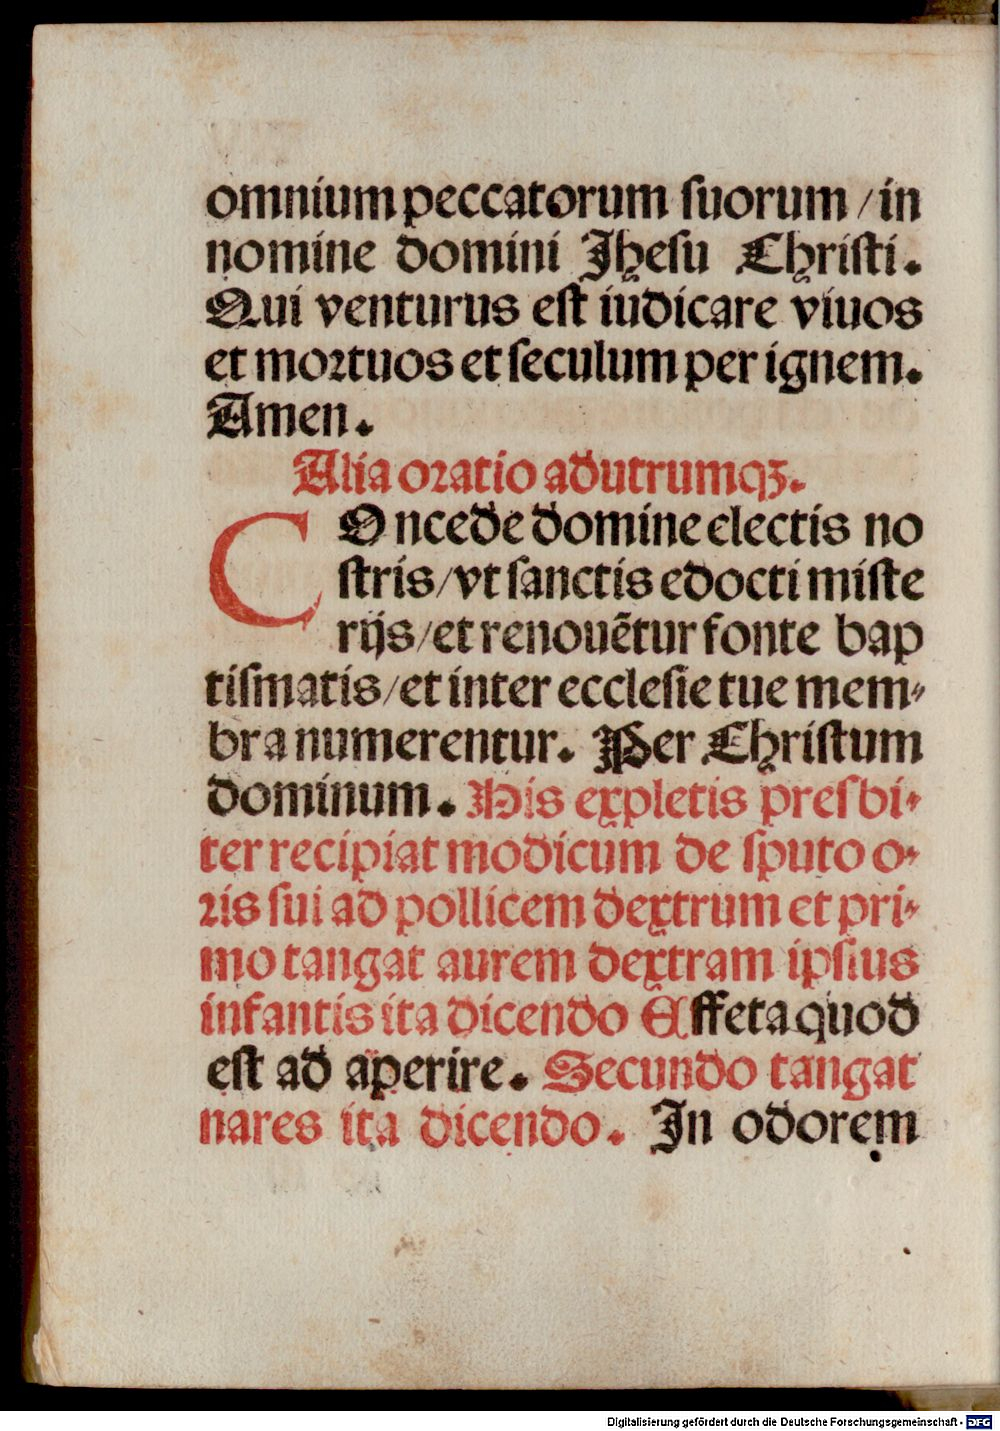 omnium peccatorum suorum / in
nomine domini Jhesu Christi.
Qui venturus est iudicare viuos
et mortuos et seculum per ignem.
Amen.
Alia oratio ad utrumqꝫ.
COncede domine electis no
stris / vt sanctis edocti miste
rijs / et renouẽtur fonte bap
tismatis / et inter ecclesie tue mem⸗
bra numerentur. Per Christum
dominum. His expletis presbi⸗
ter recipiat modicum de sputo o⸗
ris sui ad pollicem dextrum et pri⸗
mo tangat aurem dextram ipsius
infantis ita dicendo Effeta quod
est ad aperire. Secundo tangat
nares ita dicendo. In odorem
Digitalisierung gefördert durch die Deutsche Forschungsgemeinschaft - DFG